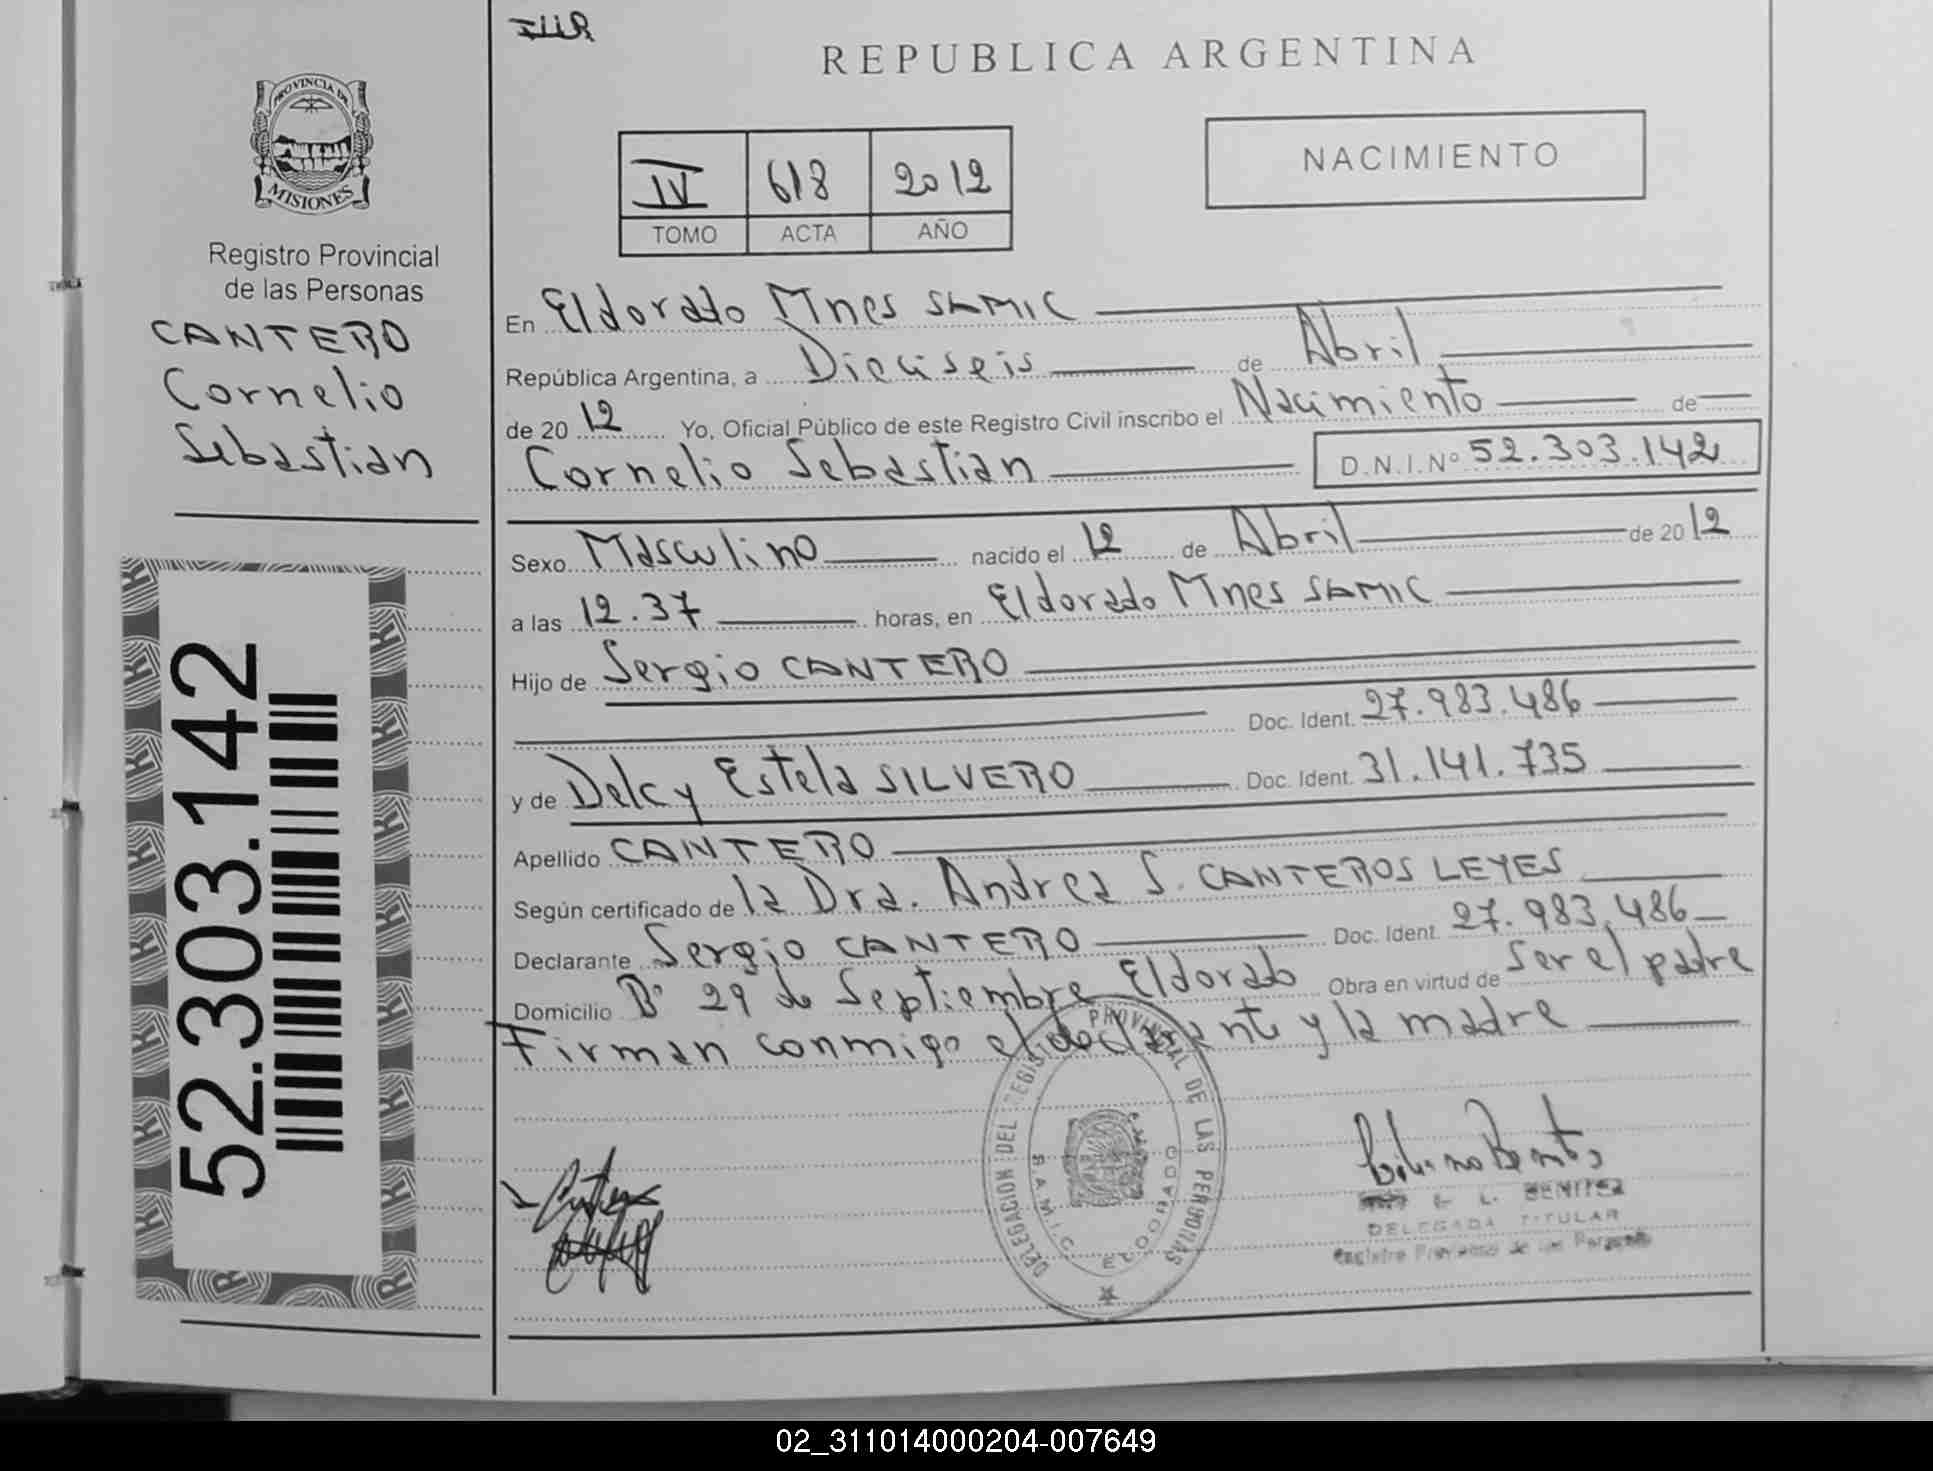 PROVINCIA DE
MISIONES
Registro Provincial
de las Personas
CANTERO
Cornelio
Sebastian
52.303.142
REPUBLICA ARGENTINA
NACIMIENTO
IV 618 2012
TOMO ACTA AÑO
En Eldorado Mnes SAMIC
República Argentina, a Dieciseis de Abril
de 20 12 Yo, Oficial Público de este Registro Civil inscribo el Nacimiento de
Cornelio Sebastian D.N.I.Nº 52.303.142
Sexo Masculino nacido el 12 de Abril de 20 12
a las 12.37 horas, en Eldorado Mnes SAMIC
Hijo de Sergio CANTERO
Doc. Ident. 27.983.486
y de Delcy Estela SILVERO Doc. Ident. 31.141.735
Apellido CANTERO
Según certificado de la Dra. Andrea S. CANTEROS LEYES
Declarante Sergio CANTERO Doc. Ident. 27.983.486
Domicilio Bº 29 de Septiembre Eldorado Obra en virtud de Ser el padre
Firman conmigo el declarante y la madre
DELEGACION DEL REGISTRO PROVINCIAL DE LAS PERSONAS
SAMIC ELDORADO
L. BENITEZ
DELEGADA TITULAR
Registro Provincial de las Personas
02_311014000204-007649